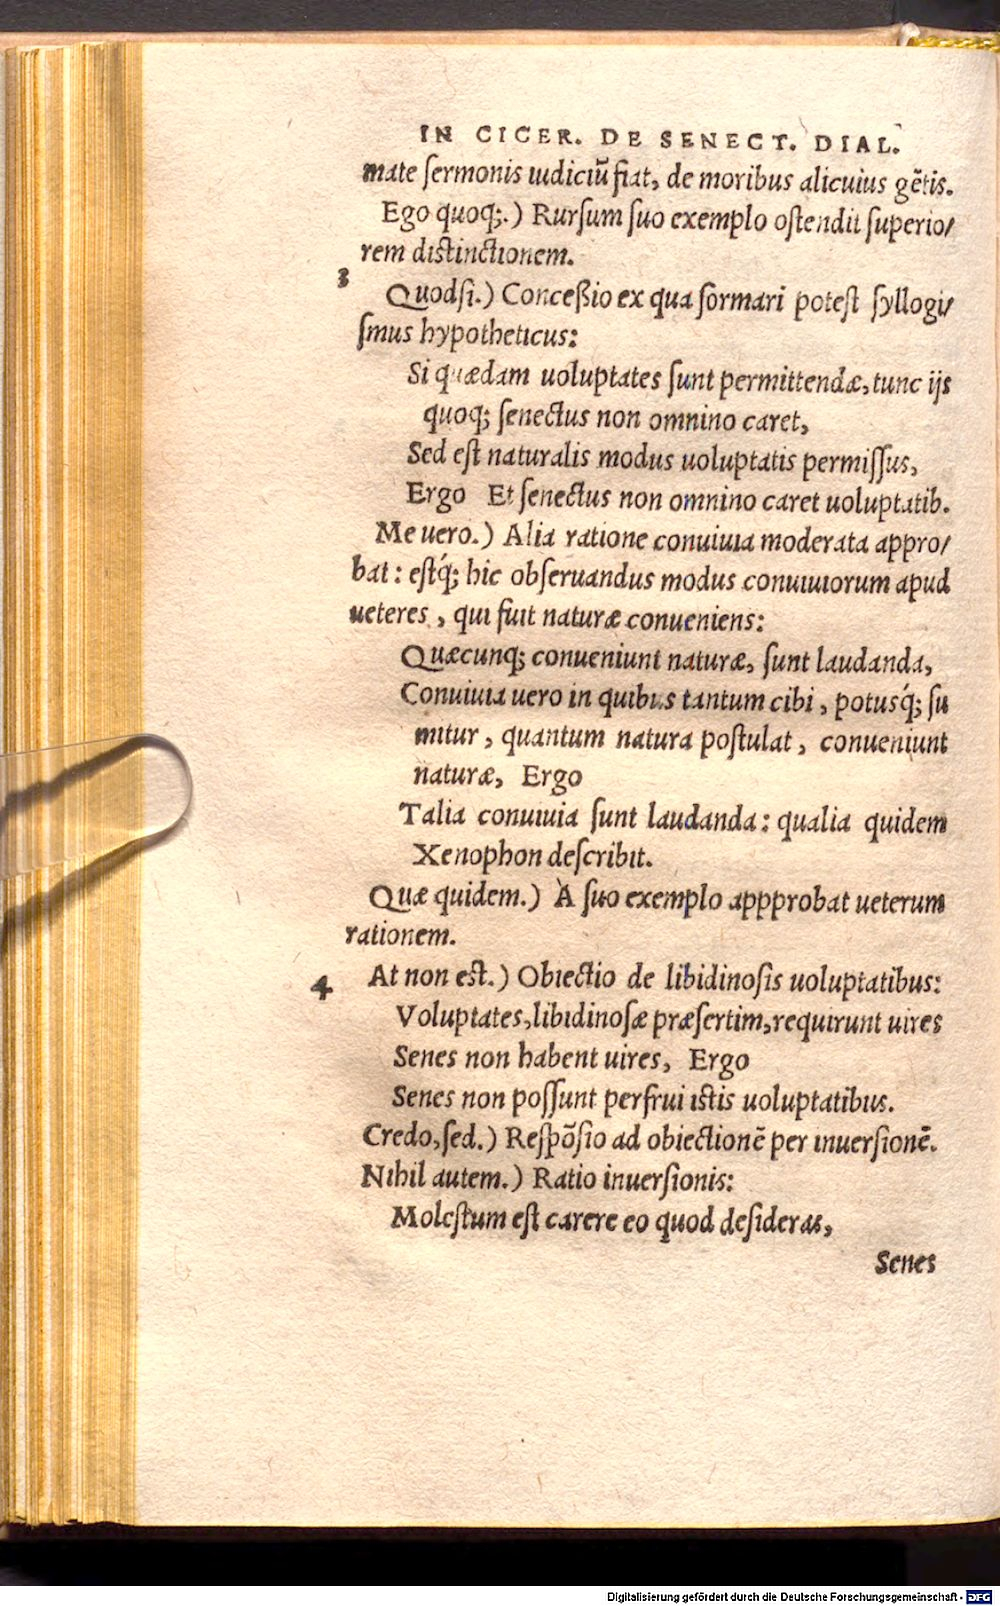 IN CICER. DE SENECT. DIAL.
mate ſermonis iudiciū fiat, de moribus alicuius gētis.
Ego quoq;.) Rurſum ſuo exemplo oſtendit ſuperio/
rem distinctionem.
3
Quodſi.) Conceßio ex qua formari poteſt ſyllogi/
ſmus hypotheticus:
Si quædam uoluptates ſunt permittendæ, tunc ijs
quoq; ſenectus non omnino caret,
Sed eſt naturalis modus uoluptatis permiſſus,
Ergo Et ſenectus non omnino caret uoluptatib.
Me uero.) Alia ratione conuiuia moderata appro/
bat: eſtq́; hic obſeruandus modus conuiuiorum apud
ueteres, qui fuit naturæ conueniens:
Quæcunq; conueniunt naturæ, ſunt laudanda,
Conuiuia uero in quibus tantum cibi, potusq́; ſu
mitur, quantum natura poſtulat, conueniunt
naturæ, Ergo
Talia conuiuia ſunt laudanda: qualia quidem
Xenophon deſcribit.
Quæ quidem.) A ſuo exemplo appprobat ueterum
rationem.
4
At non est.) Obiectio de libidinoſis uoluptatibus:
Voluptates, libidinoſæ præſertim, requirunt uires
Senes non habent uires, Ergo
Senes non poſſunt perfrui istis uoluptatibus.
Credo, ſed.) Reſpōſio ad obiectionē per inuerſionē.
Nihil autem.) Ratio inuerſionis:
Moleſtum eſt carere eo quod deſideras,
Senes
Digitalisierung gefördert durch die Deutsche Forschungsgemeinschaft - DFG